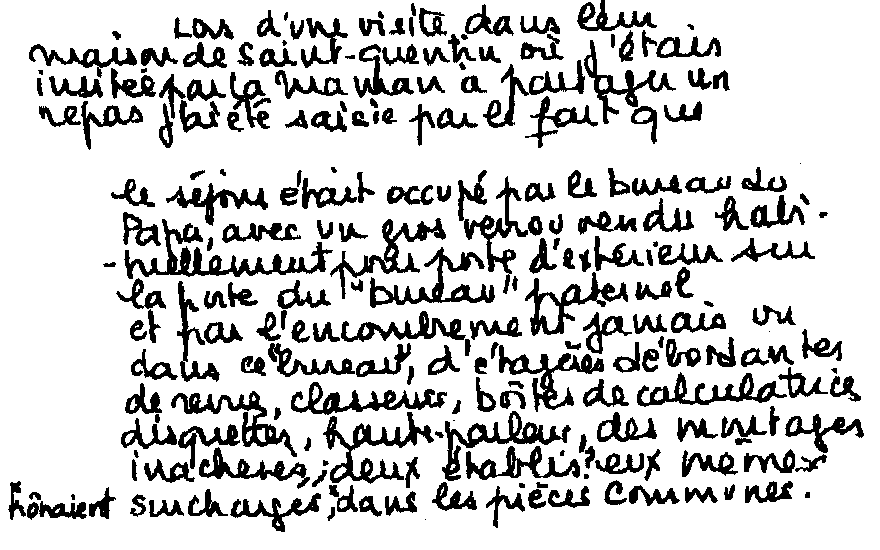 Lors d'une visite dans leur
maison de Saint-Quentin où j'étais
invitée par la maman à partager un
repas j'ai été saisie par le fait que
le séjour était occupé par le bureau du
Papa, avec un gros verrou vendu habi-
-tuellement pour porte d'extérieur sur
la porte du "bureau" paternel
et par l'encombrement jamais vu
dans ce "bureau", d'étagères débordantes
de revues, classeurs, boîtes de calculatrices
disquettes, haut-parleur, des montages
inachevés, deux établis eux mêmes
surchargés, trônaient dans les pièces communes.